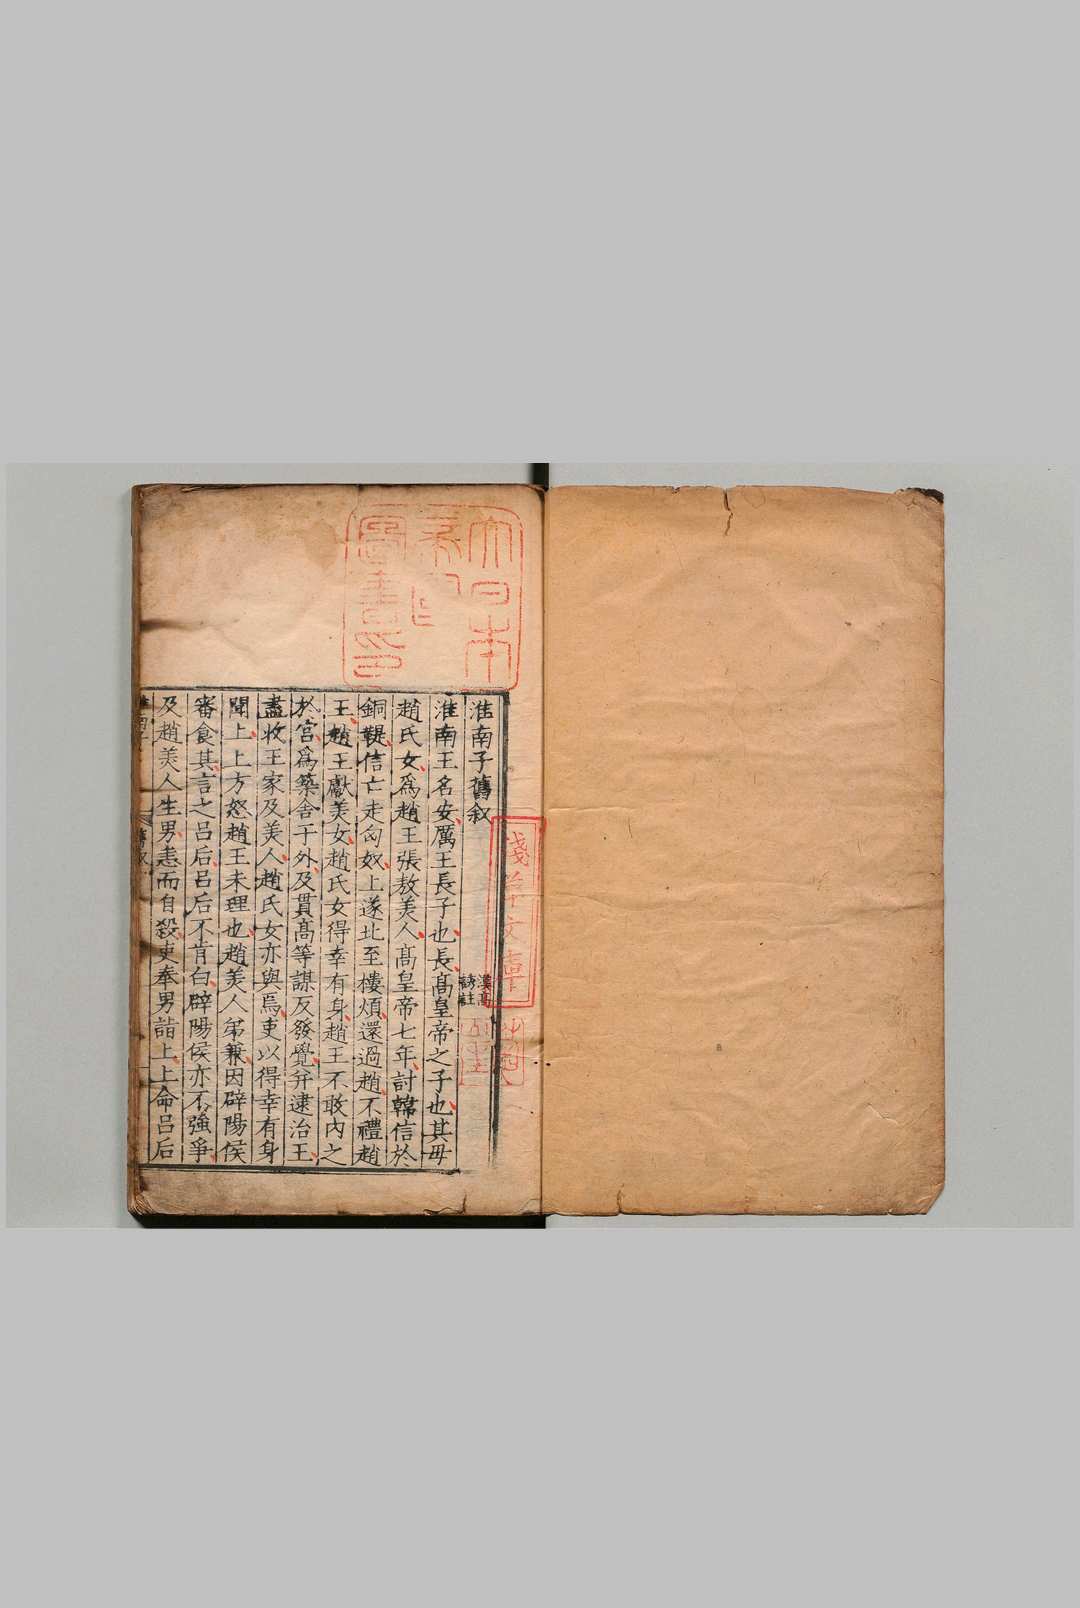 淮南子舊叙
漢高
誘註
淮南王名安厲王長子也長高皇帝之子也其毋
趙氏女爲趙王張敖美人高皇帝七年討韓信於
銅鞮信亡走匈奴上遂北至樓煩還過趙不禮趙
王趙王獻美女趙氏女得幸有身趙王不敢內之
於宮爲築舍于外及貫高等謀反發覺并逮治王
盡收王家及美人趙氏女亦與焉吏以得幸有身
聞上上方怒趙王未理也趙美人弟兼因辟陽侯
審食其言之吕后吕后不肯白辟陽侯亦不強爭
及趙美人生男恚而自殺吏奉男詣上上命吕后
大日本
圖書印
淺草文庫